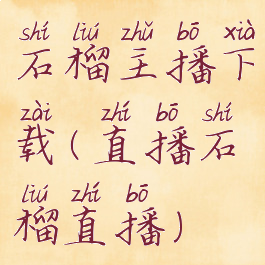 shí liú zhǔ bō xià
石榴主播下
zài zhí bō shí
载(直播石
liú zhí bō
榴直播)